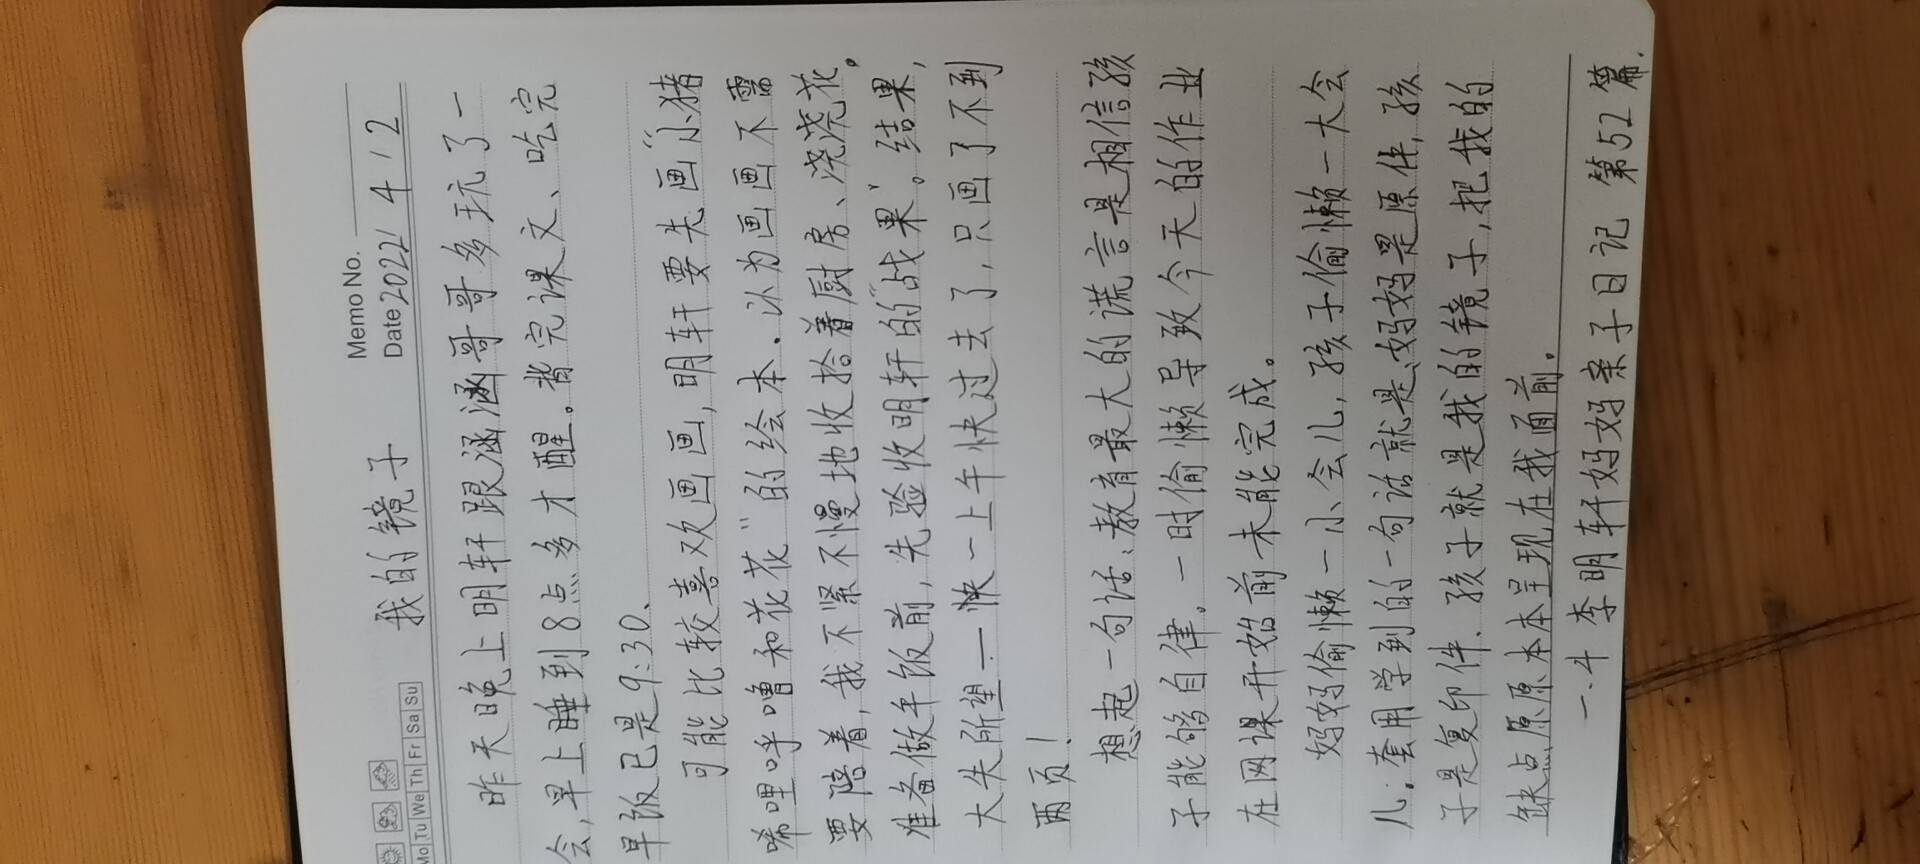 Memo No.
Mo Tu We Th Fr Sa Su
Date 2022/ 4 / 2
我的镜子
昨天晚上明轩跟涵涵哥哥多玩了一
会,早上睡到8点多才醒。背完课文、吃完
早饭已是9:30、
可能比较喜欢画画,明轩要先画“小猪
唏哩呼噜和花花”的绘本.以为画画不需
要陪着,我不紧不慢地收拾着厨房、浇浇花。
准备做午饭前,先验收明轩的“战果”。结果,
大失所望——快一上午快过去了,只画了不到
两页!
想起一句话:教育最大的谎言是相信孩
子能够自律。一时偷懒导致今天的作业
在网课开始前未能完成。
妈妈偷懒一小会儿,孩子偷懒一大会
儿;套用学到的一句话就是:妈妈是原件,孩
子是复印件、孩子就是我的镜子,把我的
缺点原原本本呈现在我面前.
一.4 李明轩妈妈亲子日记 第52篇.